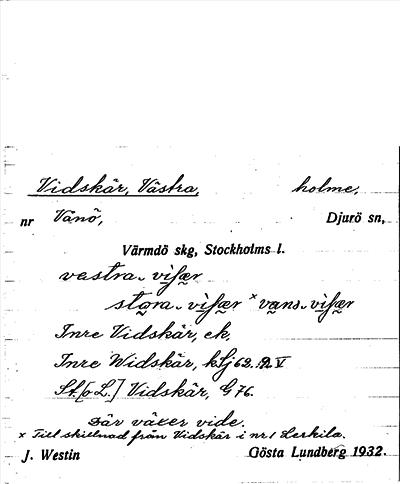 Vidskär, Västra, holme,
nr Vånö, Djurö sn,
Värmdö skg, Stockholms l.
vestra- vìʃær
stora- vìʃær ˣ vans- vìʃær
Inre Vidskär, ek,
Inre Widskär, kSj 62. V
St. [o L.] Vidskär, G 76.
Där växer vide.
x Till skillnad från Vidskär i nr 1 Lerkila.
J. Westin Gösta Lundberg 1932.